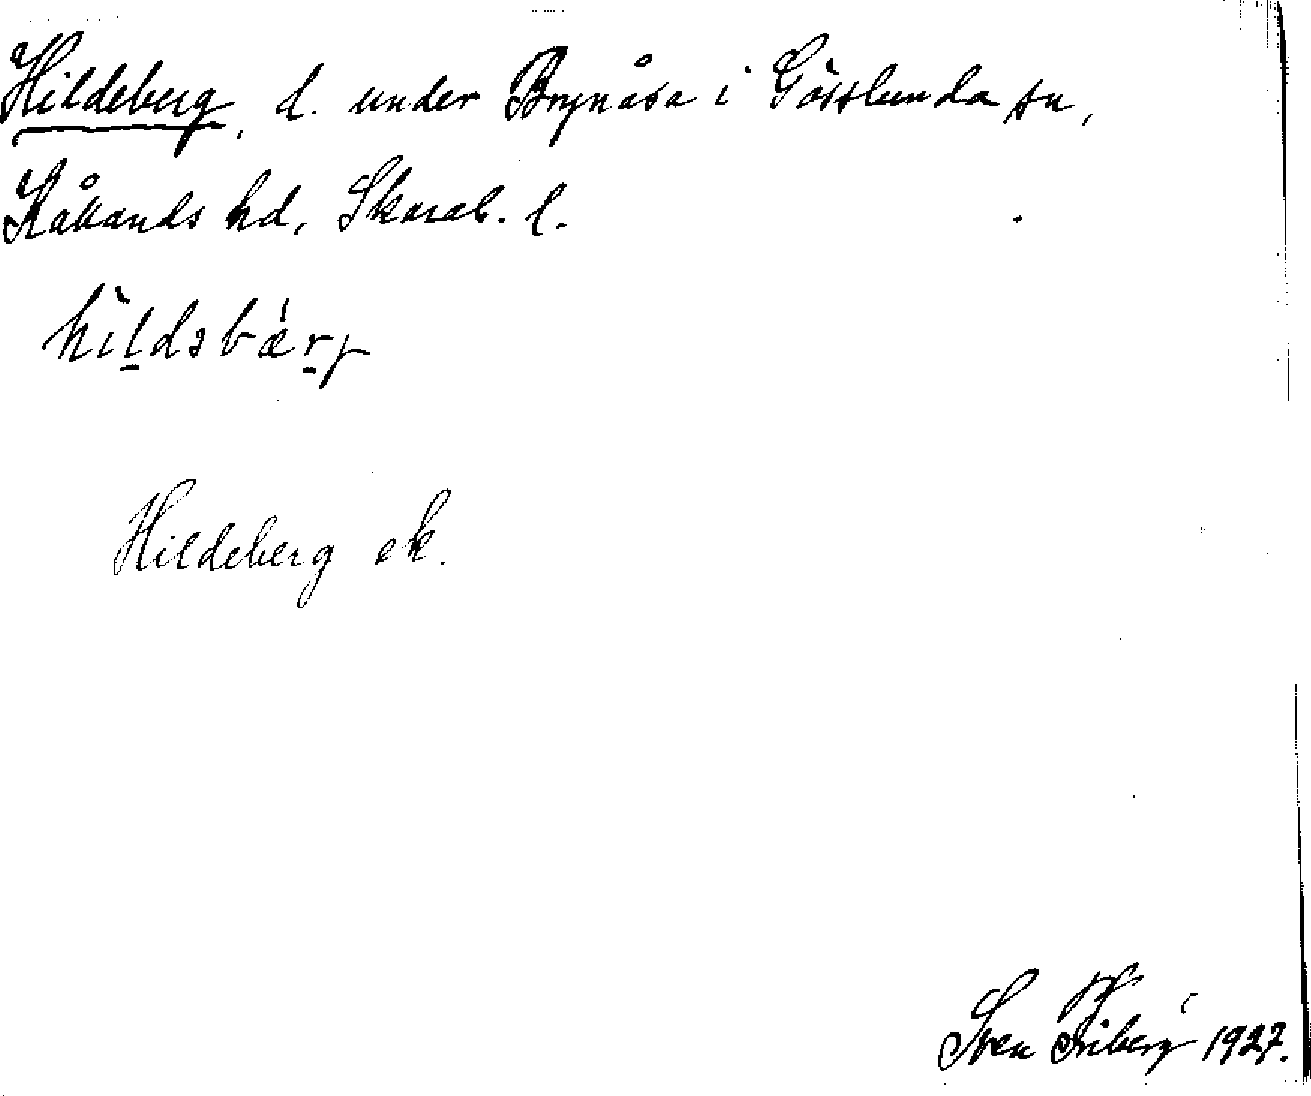 Hildeberg, d. under Brynåsa i Gösslunda sn,
Kållands hd, Skarab. l.
hìldəbǽrj
Hildeberg ek.
Sven Friberg 1927.